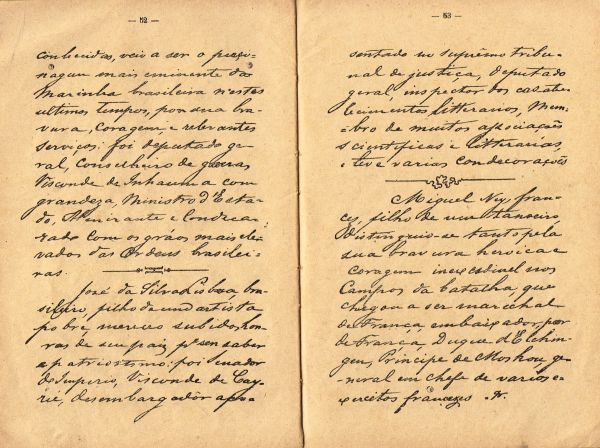 — 52 —
conhecidos, veio a ser o perso-
nagem mais eminente da
Marinha brasileira n'estes
ultimos tempos, por sua bra-
vura, Coragem, e relevantes
serviços: foi deputado ge-
ral, Conselheiro de guerra,
Visconde de Inhauma com
grandeza, Ministro d'Esta-
do, Almirante e Condeco-
rado com os gráos mais ele-
vados das Ordens brasilei-
ras.
José da Silva Lisboa, bra-
sileiro, filho de um artista
pobre, mereceu subidas hon-
ras de seu paiz, pr seu saber
e patriotismo: foi senador
do Imperio, Visconde de Cay-
rú, desembargador apo-
— 53 —
sentado no supremo tribu-
nal de justiça, deputado
geral, inspector dos estabe-
lecimentos litterarios, Mem-
bro de muitas associações
scientificas e litterarias,
e teve varias condecorações
Miguel Ney, fran-
cez, filho de um tanoeiro
distinguio-se tanto pela
sua bravura heroica e
coragem inexcedivel nos
Campos da batalha, que
chegou a ser marechal
de França, embaixador, par
de França, Duque d'Elchin-
gen, Principe de Moskou, ge-
neral em chefe de varios e-
xercitos francezes